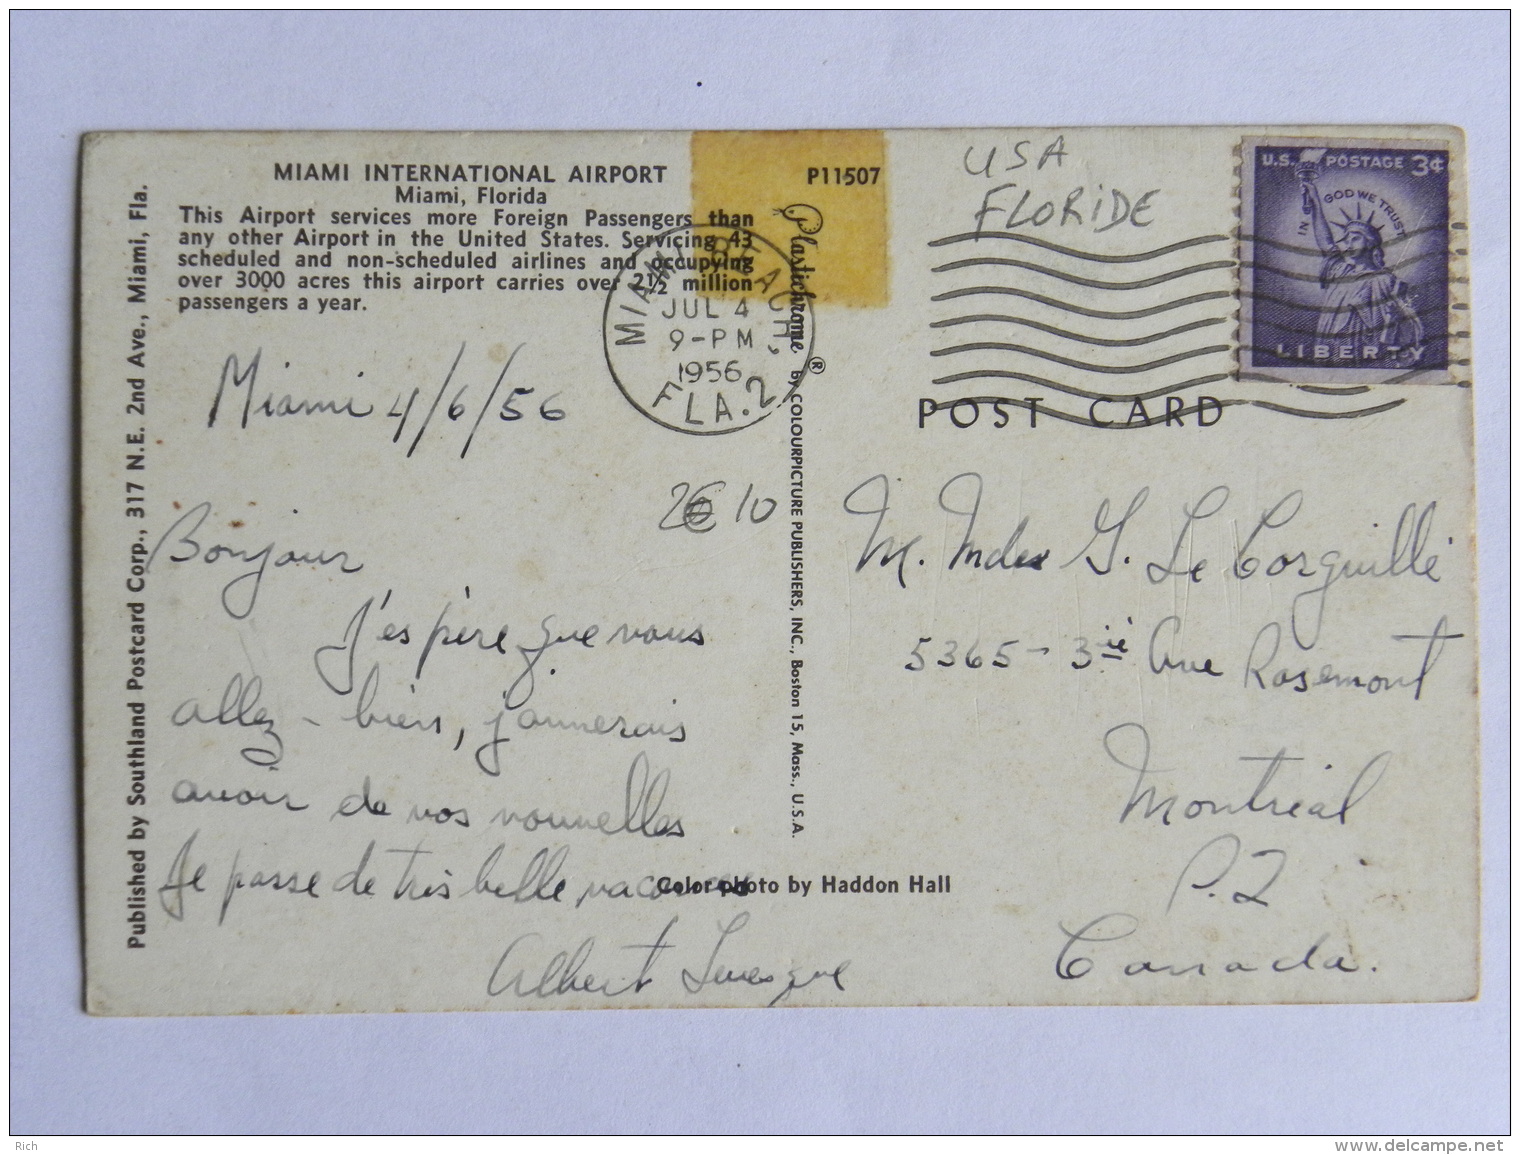 MIAMI INTERNATIONAL AIRPORT
Miami, Florida
This Airport services more Foreign Passengers than
any other Airport in the United States. Servicing 43
scheduled and non-scheduled airlines and occupying
over 3000 acres this airport carries over 2½ million
passengers a year.
P11507
Published by Southland Postcard Corp., 317 N.E. 2nd Ave., Miami, Fla.
Plastichrome ® by COLOURPICTURE PUBLISHERS, INC., Boston 15, Mass., U.S.A.
MIAMI BEACH,
JUL 4
9-PM
1956
FLA. 2
USA
FLORIDE
U.S. POSTAGE 3¢
IN GOD WE TRUST
LIBERTY
POST CARD
Miami 4/6/56
2€ 10
Bonjour
J'espère que vous
allez-bien, j'aimerais
avoir de vos nouvelles
Je passe de très belle vacances
Albert Levesque
Color photo by Haddon Hall
M. G. Le Corguillé
5365 - 3iè Ave Rosemont
Montréal
P.Q
Canada.
Rich
www.delcampe.net